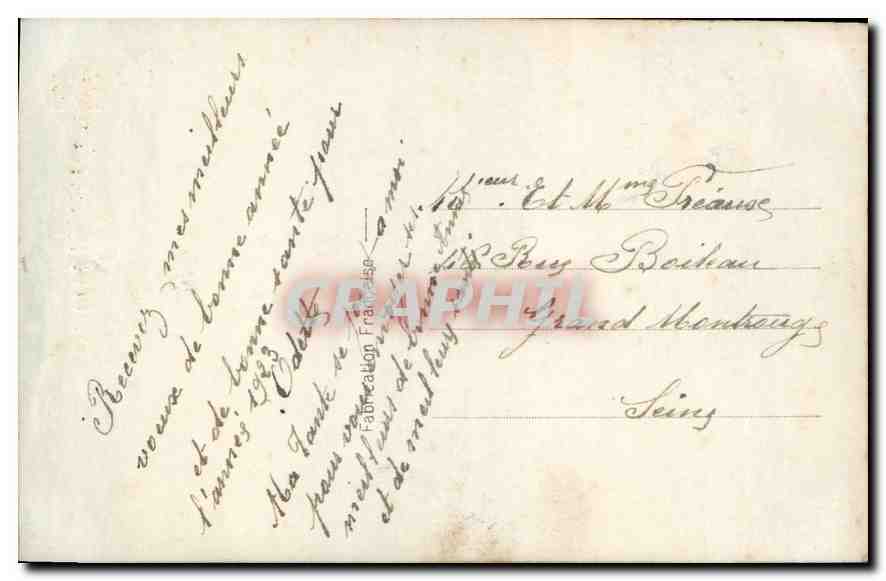 Recevez mes meilleurs
voeux de bonne année
et de bonne santé pour
l'année 1923
Odette
Ma Tante se a moi
pour vous
meilleurs de bonne
et de meilleurs
Fabrication Française
CRAPHIL
M ieur Et Mme Tréause
48 Rue Boileau
Grand Montrouge
Seine